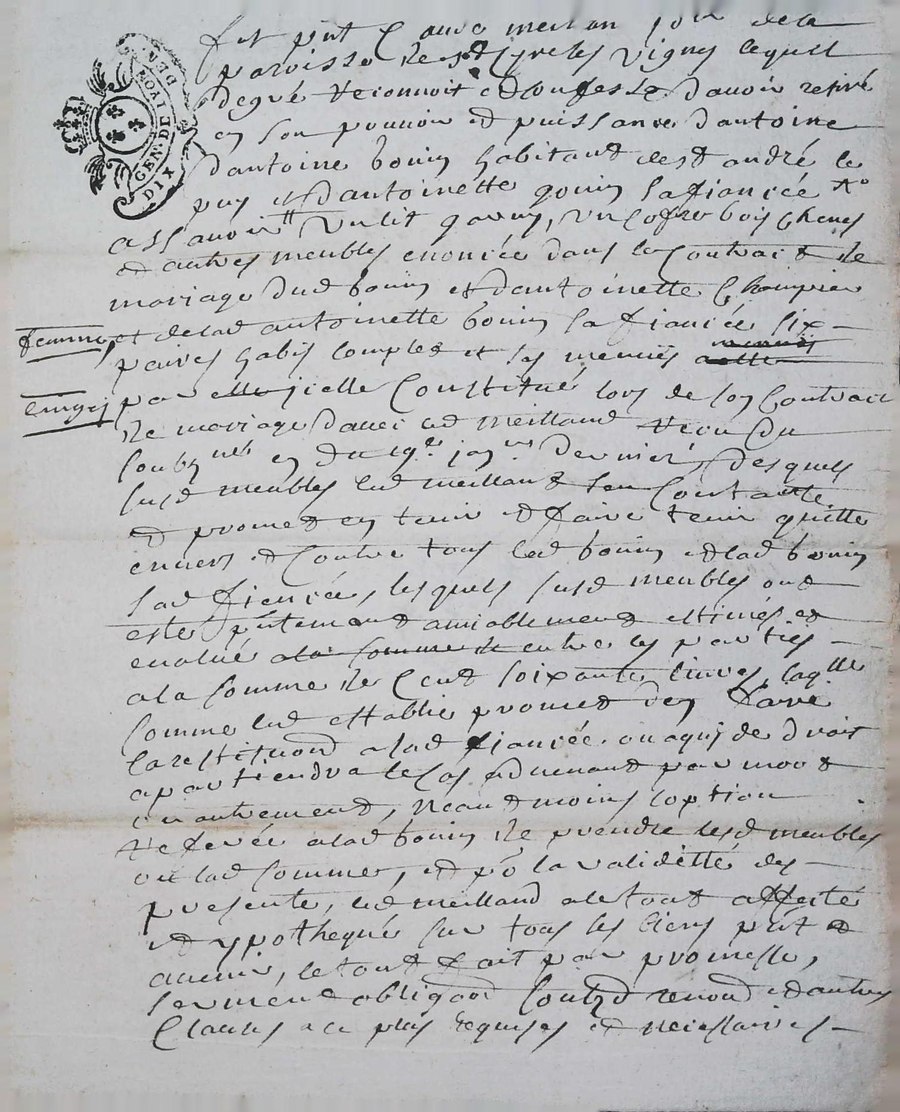 fut pnt C meilan jour de la
paroisse de st Cyre les vignes lequel
de gré reconnoit et confesse d'avoir retiré
en son pouvoir et puissance d'antoine
d'antoine bouin habitant de st andré le
puy et d'antoinette gouin sa fiancée
assavoir un lit garny, un cofre bois chene
et autres meubles enoncée dans le Contrait de
mariage dud bouin et d'antoinette Champier
femme, et de lad antoinette bouin sa fiancée six
paires habis complet et ses menuis
par elle jcelle Constitué lors de son Contrait
de mariage d'avec led meilland receu du
soubzné en du 19e janer dernier, desquels
susd meubles led meilland s'en Contante
et promet en tenir et faire tenir quitte
envers et Contre tous led bouin et lad bouin
sad fiancée, lesquels susd meubles ont
esté pntement amiablement estimés et
evalué a la somme de entre les parties
a la somme de Cent soixante livres, laqlle
somme led estably promet d'en faire
la restituon a lad fiancée ou a qui de droit
apartiendra le cas advenant par mort
ou autrement, neandmoins l'option
reservée a lad bouin de prendre lesd meubles
ou lad somme, et po la validitté des
presente, led meilland a le tout affecté
et ypothequé sur tous les biens pnt et
avenir, le tout fait par promesse,
serment obligaon soubzd renond et autres
Clauses a ce plus requises et necessaires
GEN. DE LYON
DIX DEN.